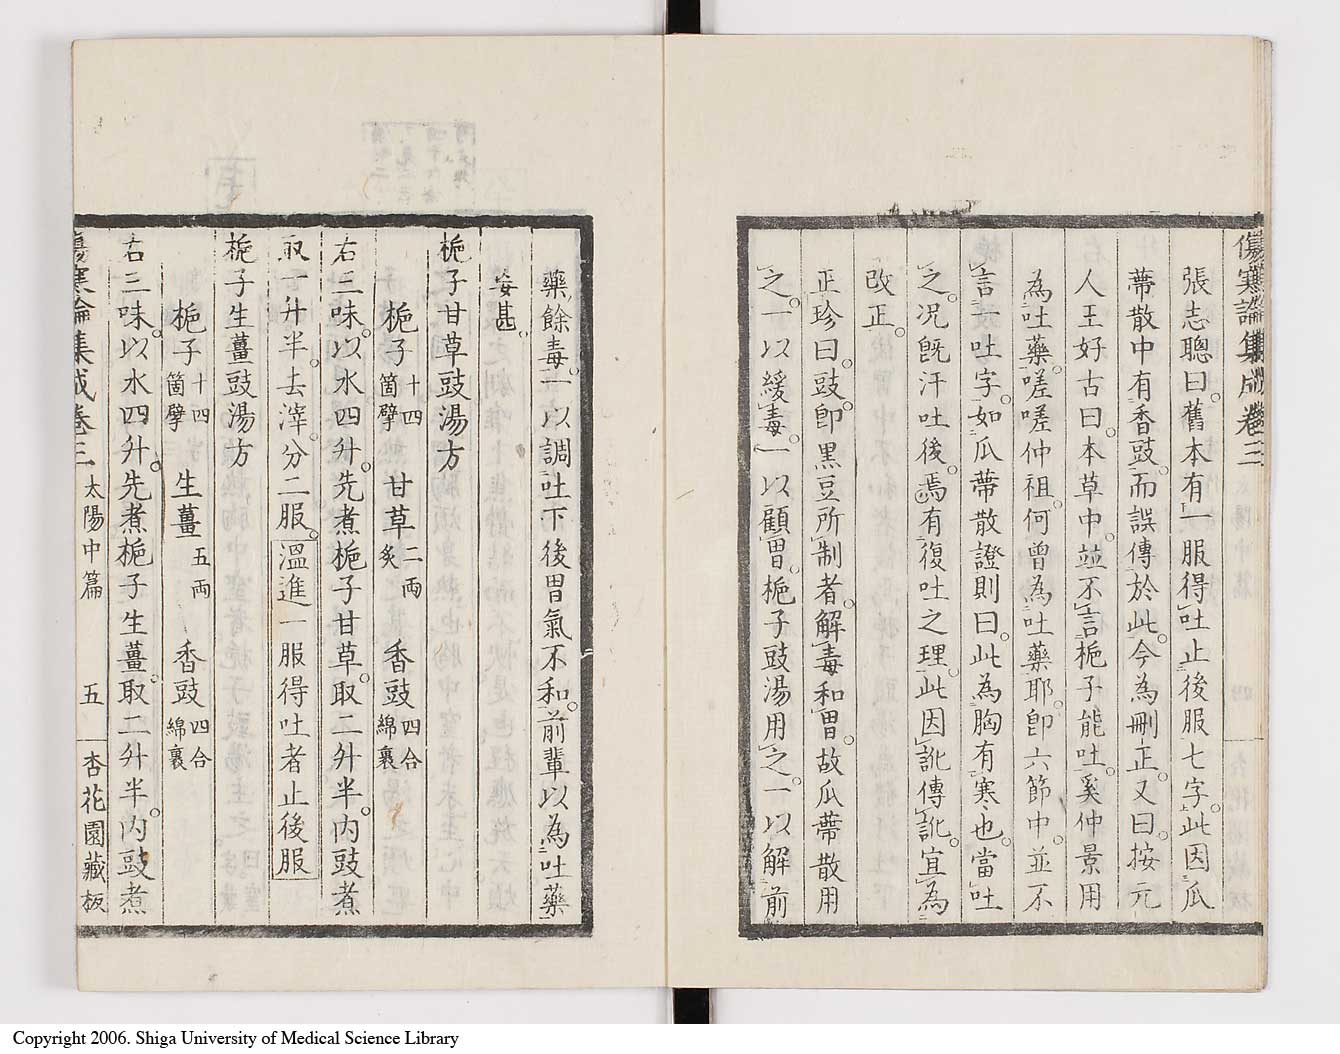 傷寒論集成卷三
張志聰曰舊本有一服得吐止後服七字此因瓜
蔕散中有香豉而誤傳於此今為刪正又曰按元
人王好古曰本草中竝不言梔子能吐奚仲景用
為吐藥嗟嗟仲祖何曾為吐藥耶卽六節中並不
言一吐字如瓜蔕散證則曰此為胸有寒也當吐
之況旣汗吐後焉有復吐之理此因訛傳訛宜為
改正
正珍曰豉卽黒豆所制者解毒和胃故瓜蔕散用
之一以緩毒一以顧胃梔子豉湯用之一以解前
藥餘毒一以調吐下後胃氣不和前輩以為吐藥
妄甚
梔子甘草豉湯方
梔子十四箇擘 甘草二両炙 香豉四合綿裹
右三味以水四升先煮梔子甘草取二升半内豉煮
取一升半去滓分二服溫進一服得吐者止後服
梔子生薑豉湯方
梔子十四箇擘 生薑五両 香豉四合綿裹
右三味以水四升先煮梔子生薑取二升半内豉煮
傷寒論集成卷三 太陽中篇 五 杏花園藏板
Copyright 2006. Shiga University of Medical Science Library